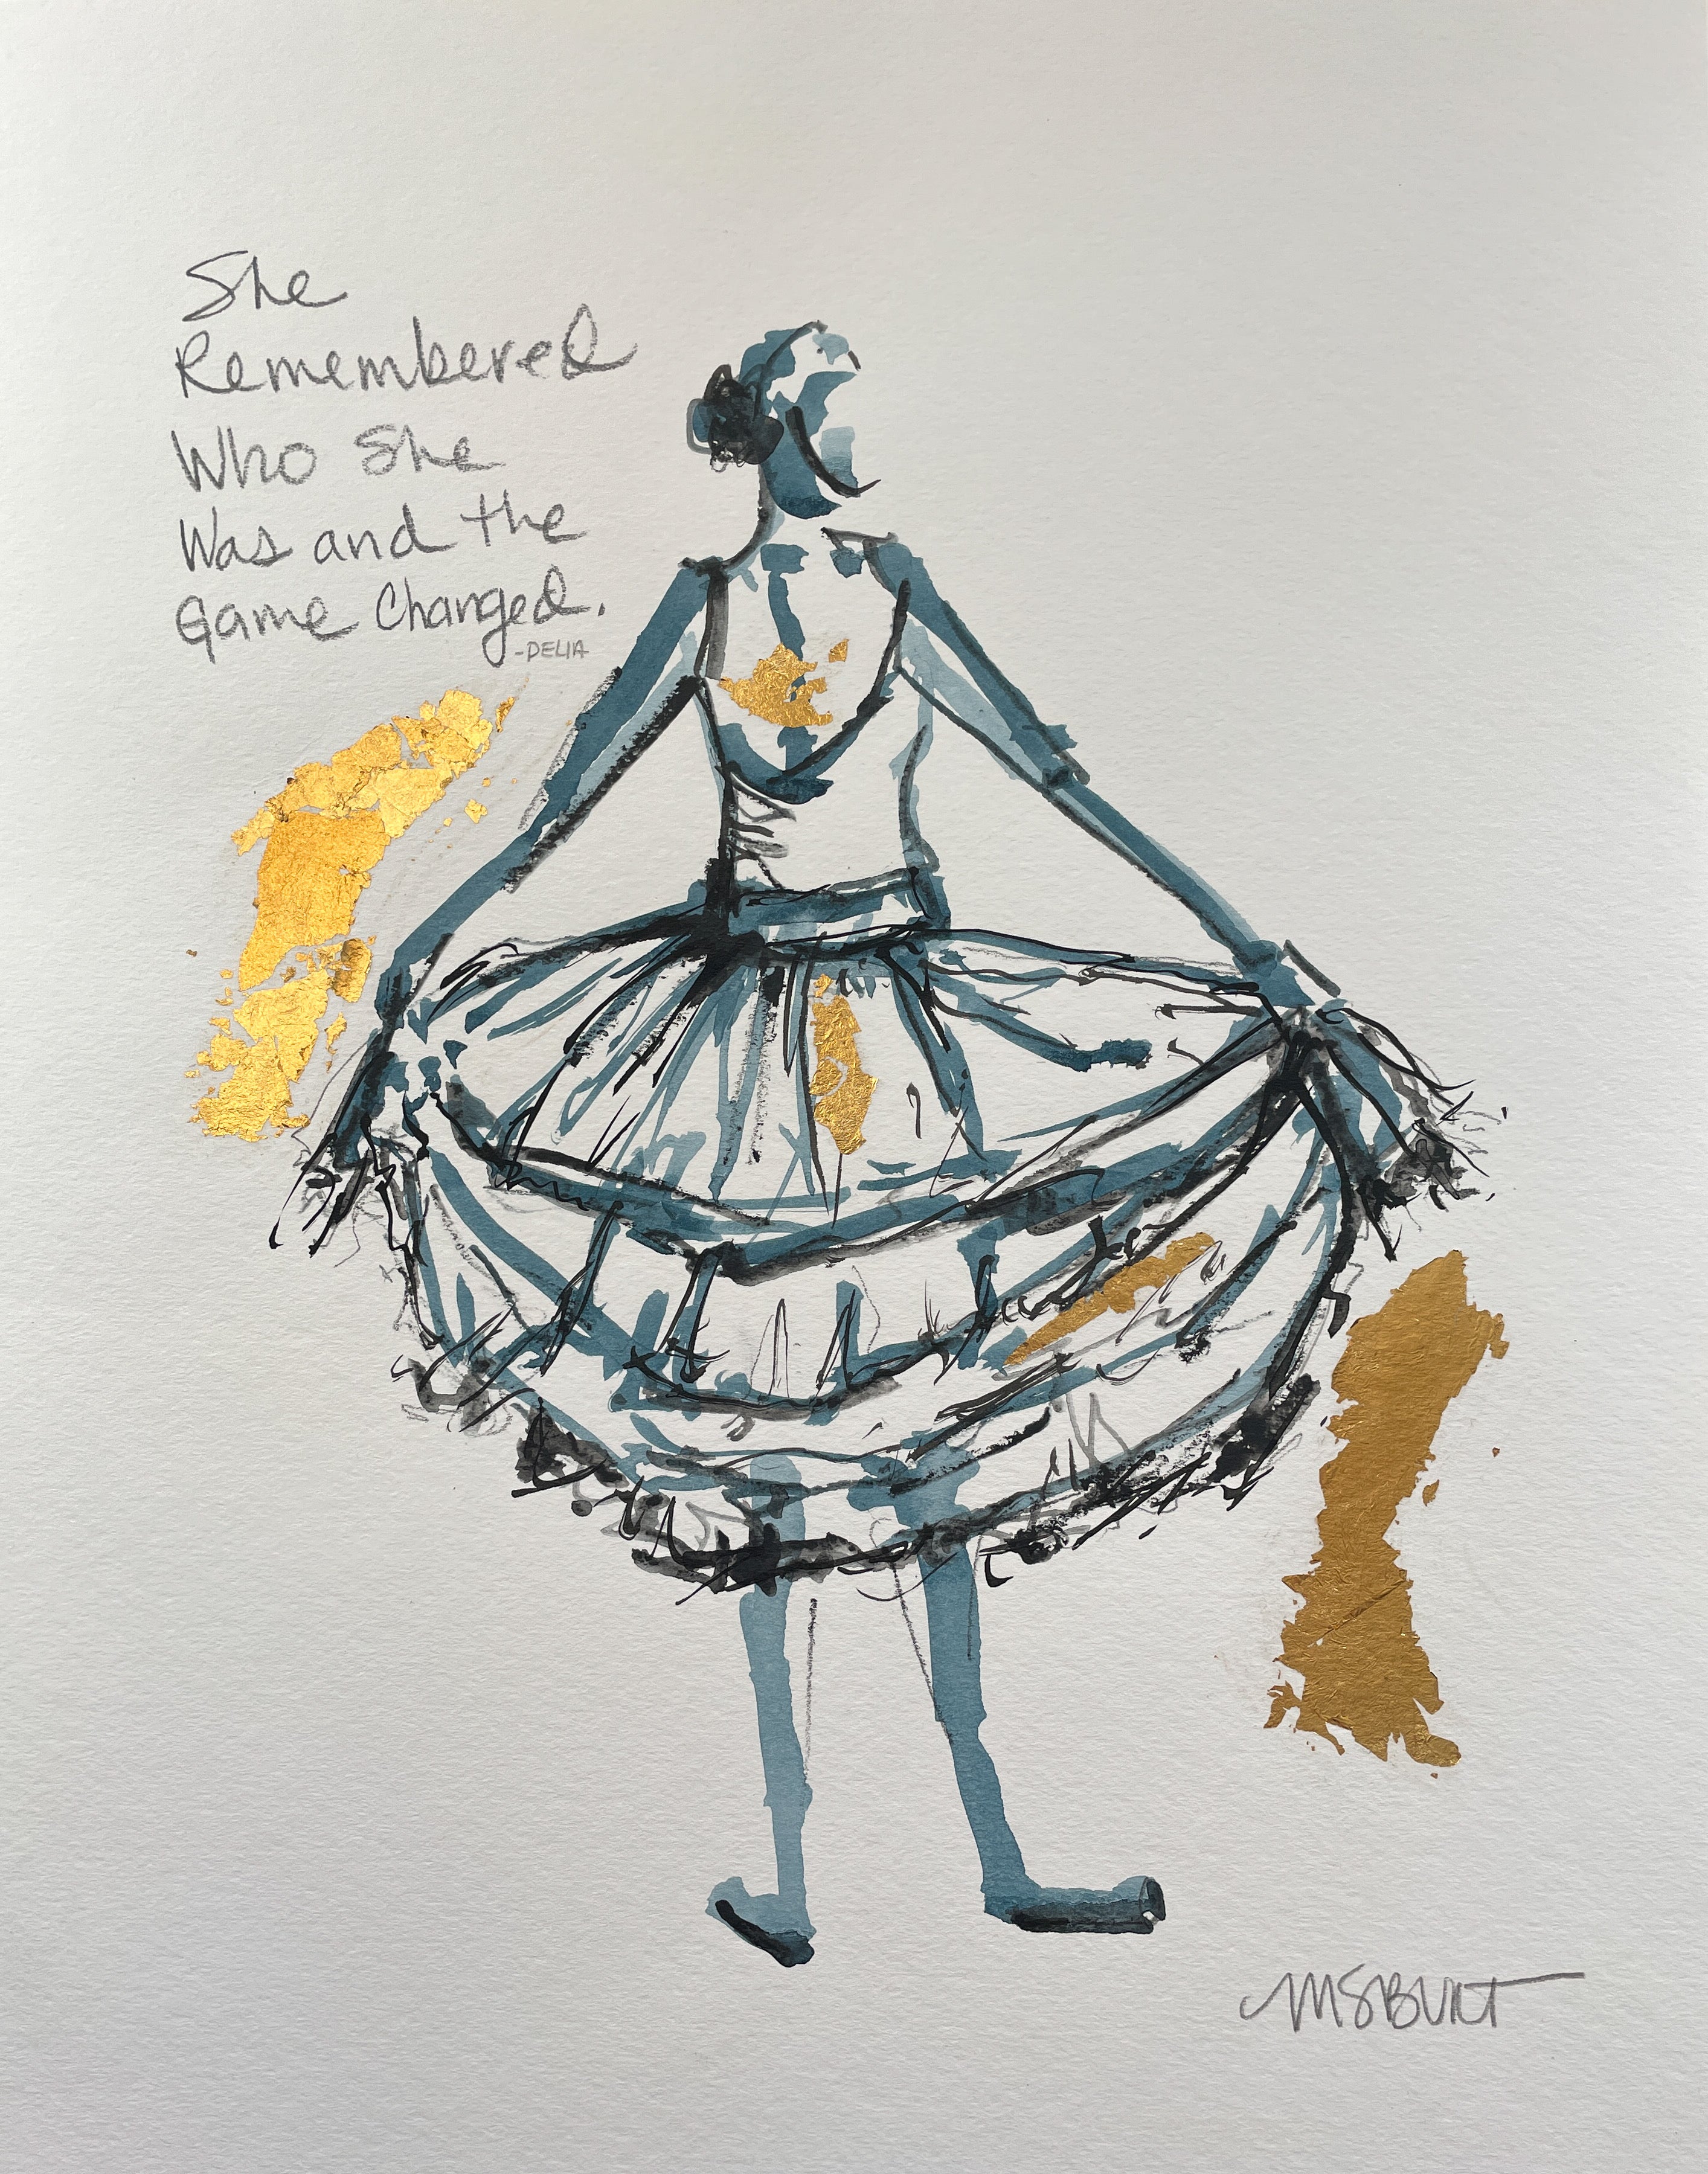 She
Remembered
Who She
Was and the
Game Changed.
-DELIA
MSBURT